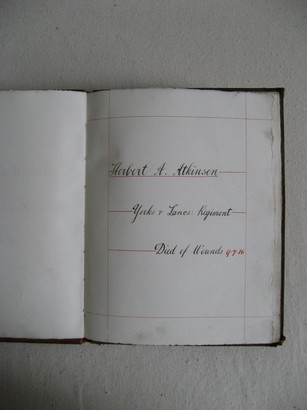 Herbert A. Atkinson
Yorks & Lancs: Regiment
Died of Wounds 9 7 16